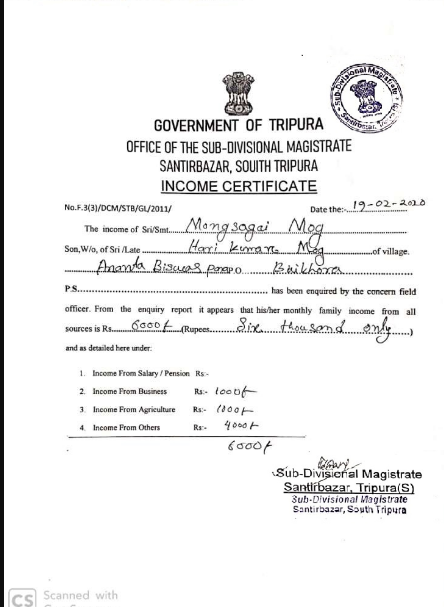 Sub-Divisional Magistrate
Santirbazar,
GOVERNMENT OF TRIPURA
OFFICE OF THE SUB-DIVISIONAL MAGISTRATE
SANTIRBAZAR, SOUITH TRIPURA
INCOME CERTIFICATE
No.F.3(3)/DCM/STB/GL/2011/ Date the:- 19-02-2020
The income of Sri/Smt. Mongsagai Mog
Son,W/o, of Sri /Late Hari Kumar Mog of village.
Ananta Biswas para P.O. Baikhora
P.S. has been enquired by the concern field
officer. From the enquiry report it appears that his/her monthly family income from all
sources is Rs. 6000/- (Rupees. Six thousand only )
and as detailed here under:
1. Income From Salary / Pension Rs:-
2. Income From Business Rs:- 1000/-
3. Income From Agriculture Rs:- 1000/-
4. Income From Others Rs:- 4000/-
6000/-
Sub-Divisional Magistrate
Santirbazar, Tripura(S)
Sub-Divisional Magistrate
Santirbazar, South Tripura
CS Scanned with